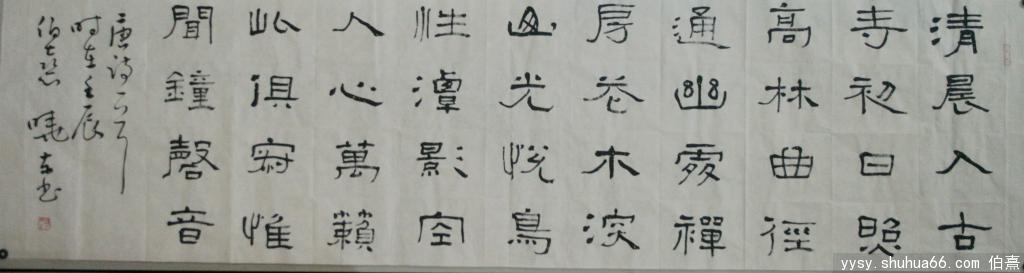 清晨入古
寺初日照
高林曲徑
通幽處禪
房花木深
山光悅鳥
性潭影空
人心萬籟
此俱寂惟
聞鐘磬音
唐詩一首
时在壬辰
yysy.shuhua66.com 伯熹